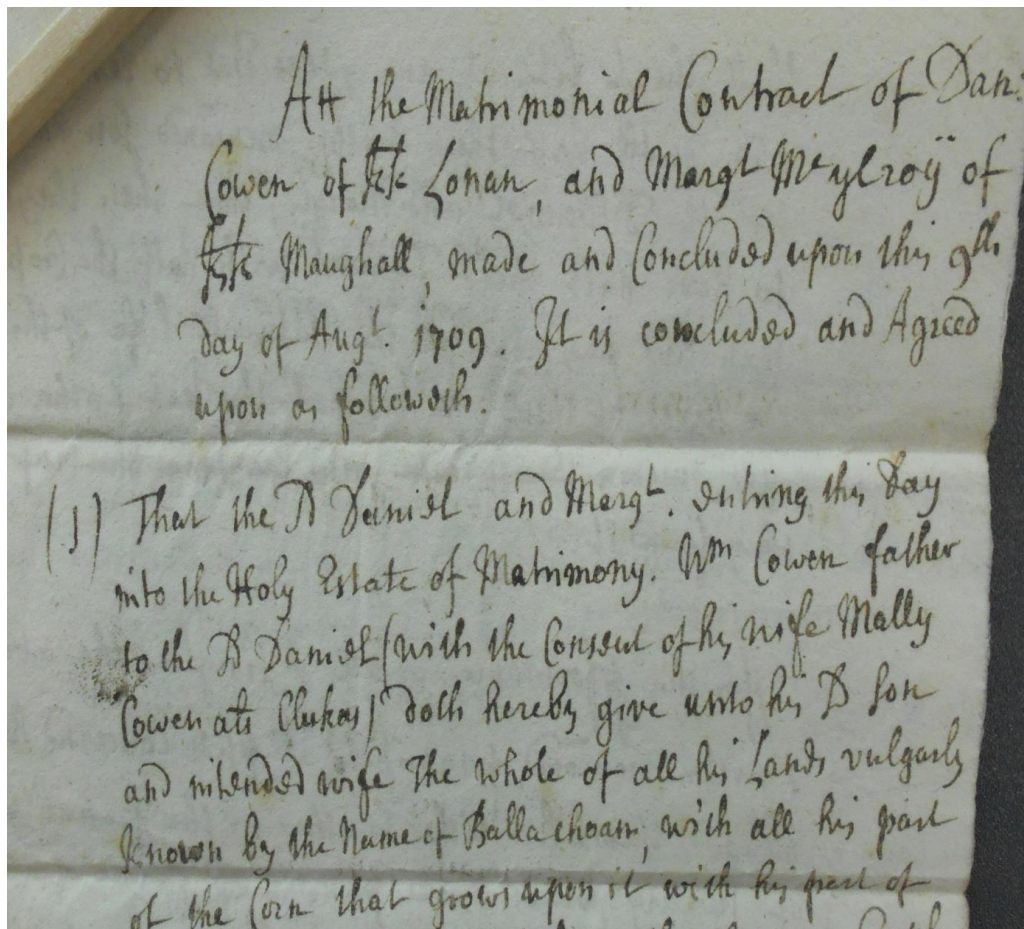 Att the Matrimonial Contract of Dan:
Cowen of kk Lonan, and Margt Mcylroÿ of
kk Maughall, made and Concluded upon this 9th
day of Augt. 1709. It is concluded and Agreed
upon as followeth.
(1) That the sd Daniel and Margt. entring this Day
into the Holy Estate of Matrimony. Wm Cowen father
to the sd Daniel (with the Consent of his wife Mally
Cowen ats Clukas) doth hereby give unto his sd son
and intended wife The whole of all his Lands vulgarly
known by the Name of Ballachoan, with all his part
of the Corn that grows upon it with his part of